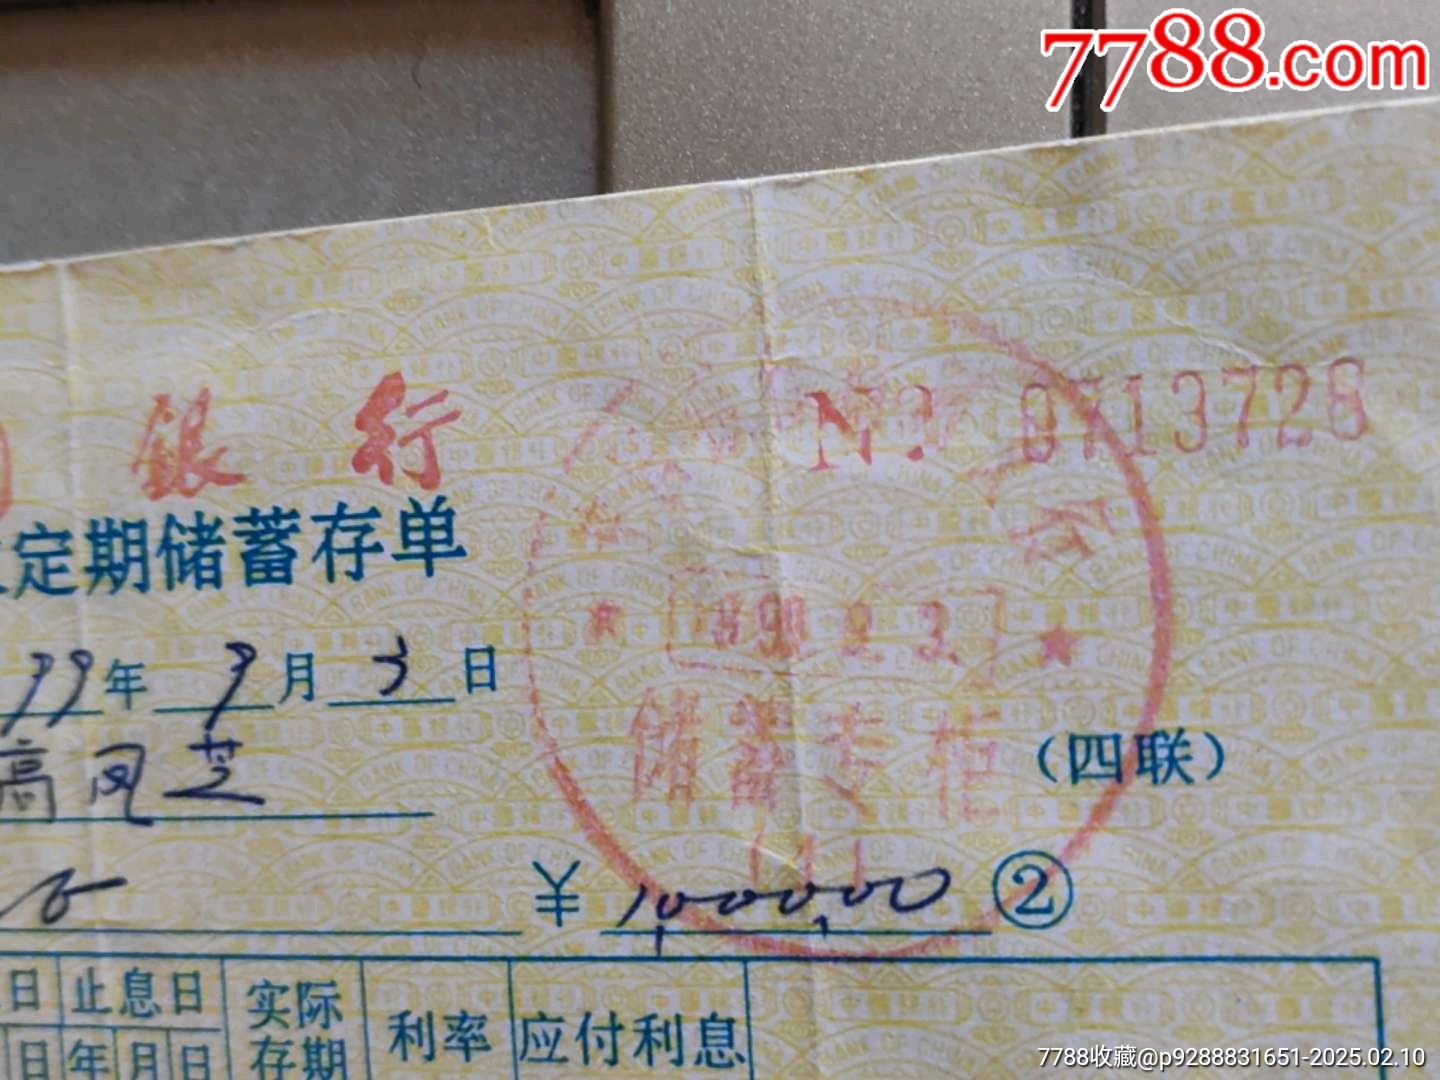 7788.com
银行
№ 0713728
定期储蓄存单
99年 9月 3日
储蓄专柜
(四联)
高凤芝
¥ 1,000,00 ②
日 止息日 实际存期 利率 应付利息
日 年 月 日
7788收藏@p9288831651-2025.02.10